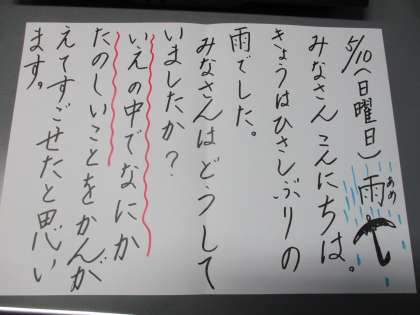 5/10(日曜日)雨
あめ
みなさんこんにちは。
きょうはひさしぶりの
雨でした。
みなさんはどうして
いましたか？
いえの中でなにか
たのしいことをかんが
えてすごせたと思い
ます。